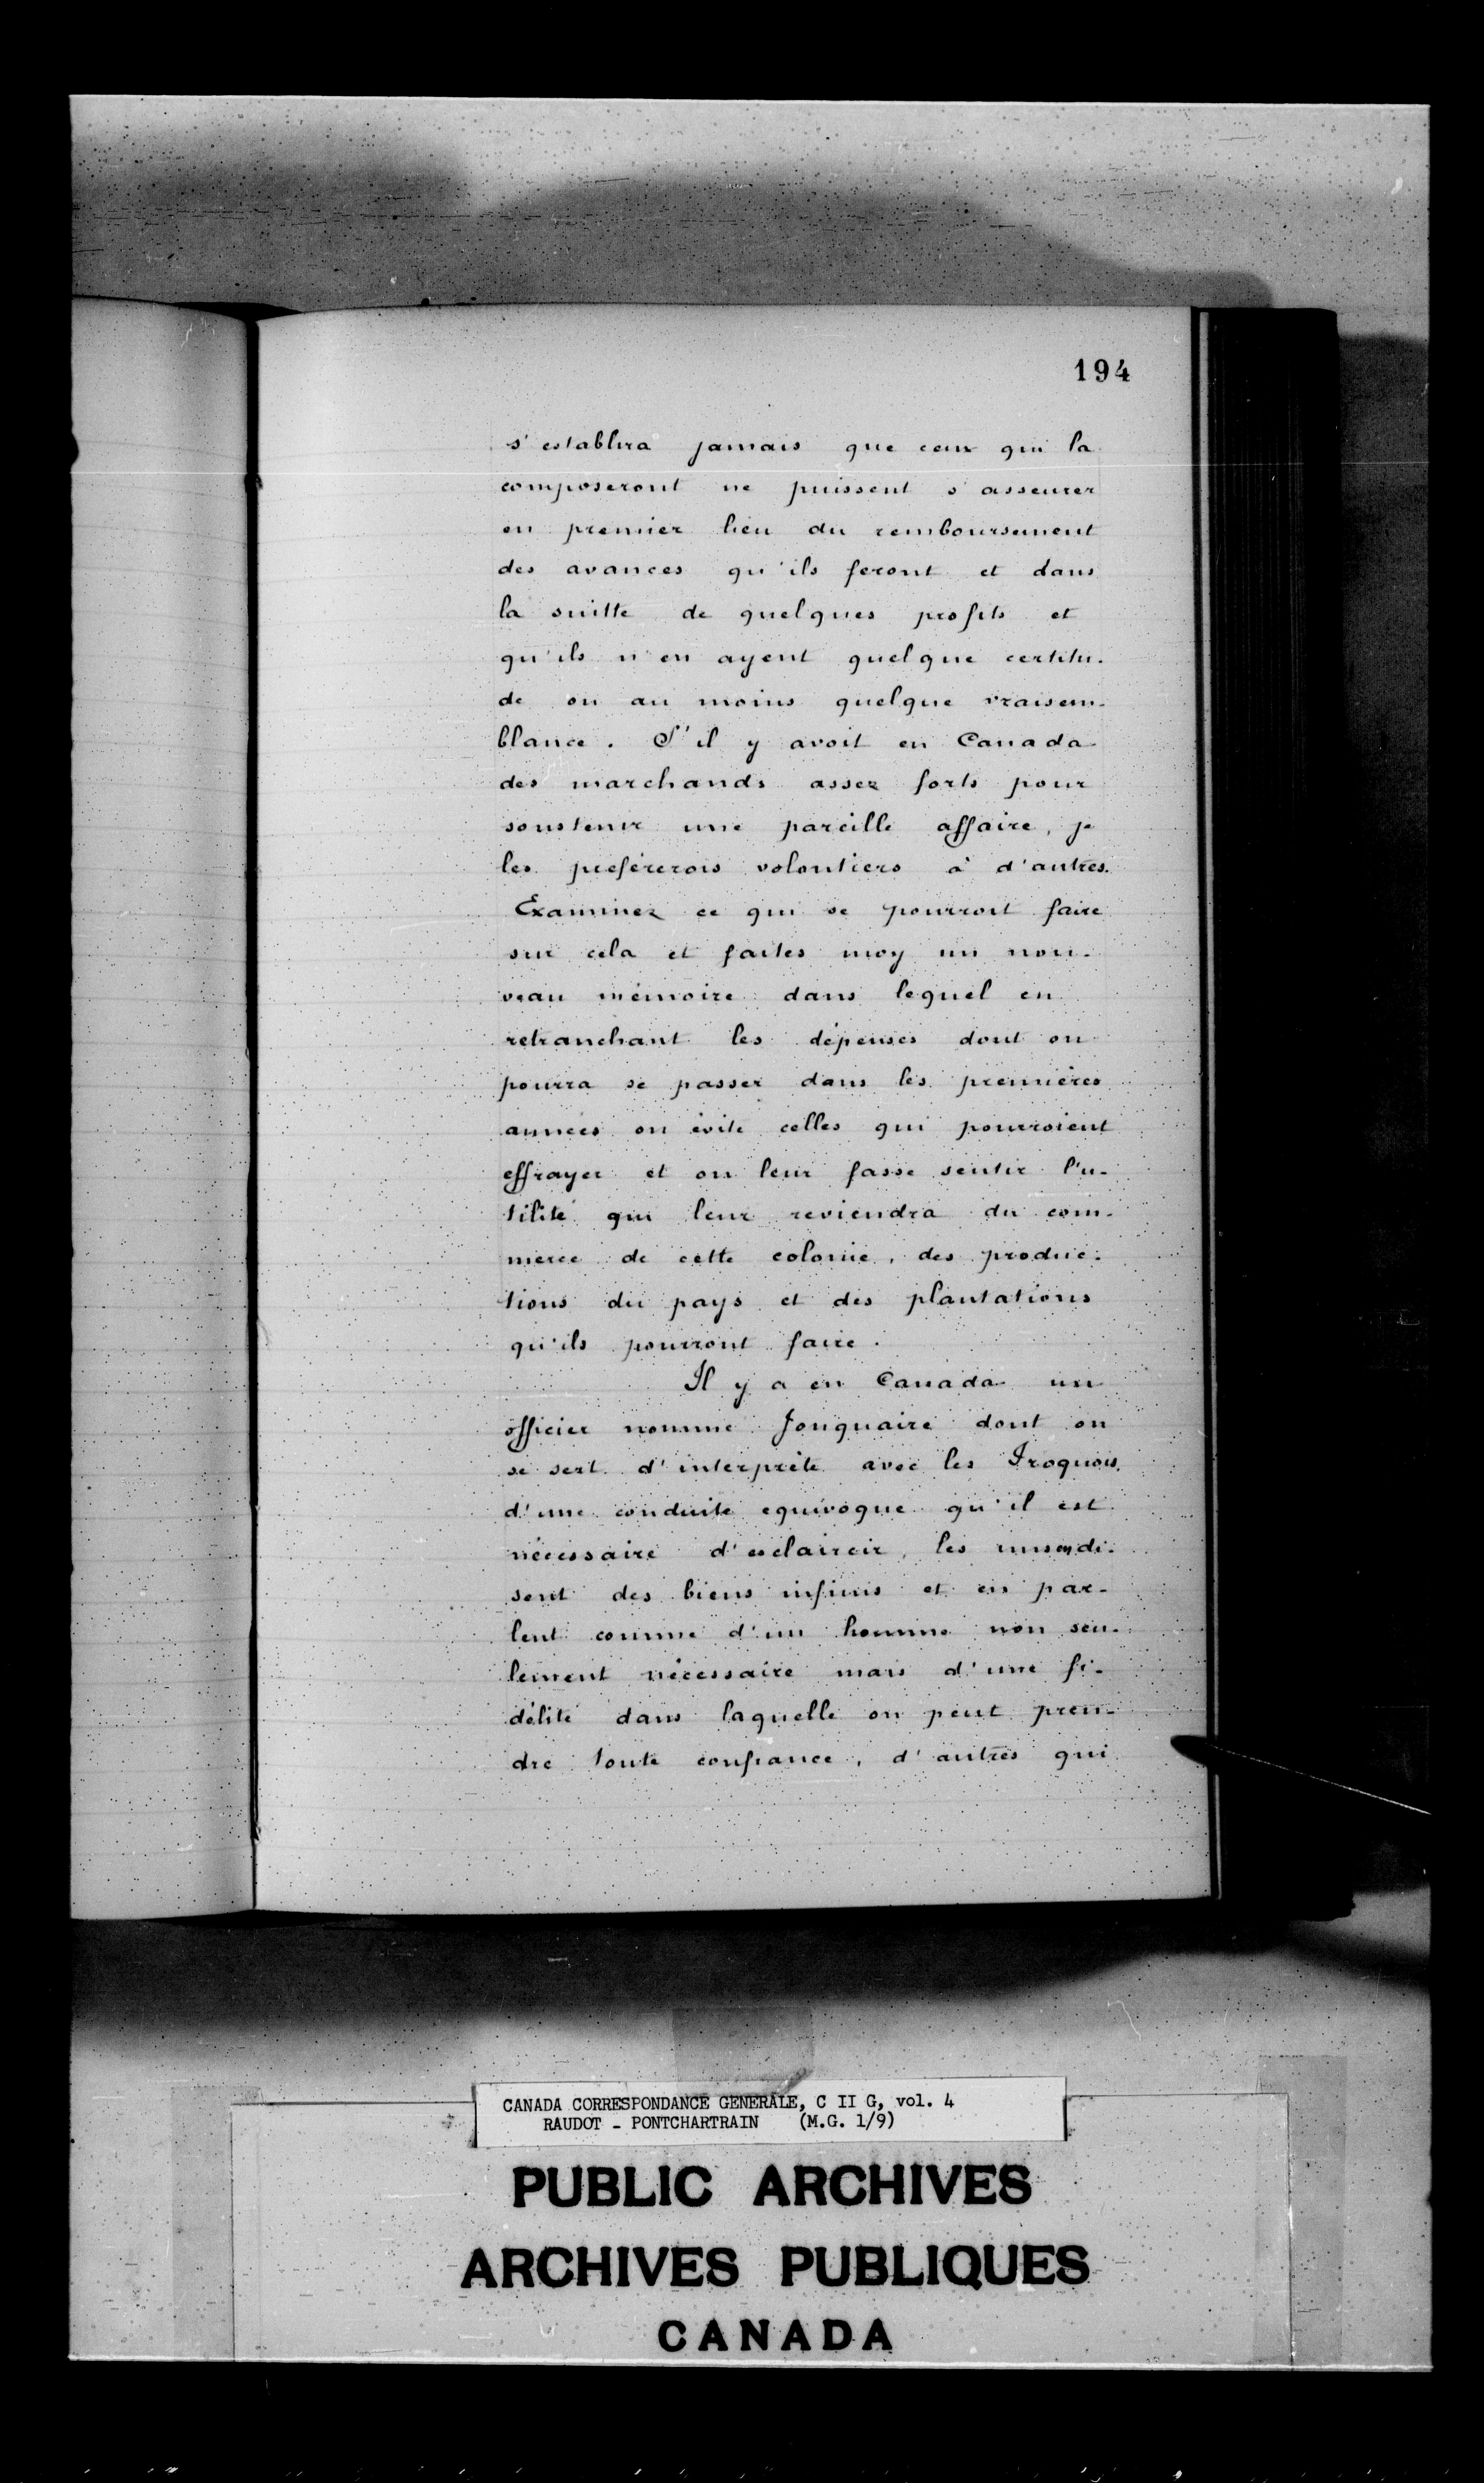 194
s'establira jamais que ceux qui la
composeront ne puissent s'asseurer
en premier lieu du remboursement
des avances qu'ils feront et dans
la suitte de quelques profits et
qu'ils n'en ayent quelque certitu-
de ou au moins quelque vraisem-
blance. S'il y avoit en Canada
des marchands assez forts pour
soustenir une pareille affaire, je
les préfèrerois volontiers à d'autres.
Examinez ce qui se pourroit faire
sur cela et faites moy un nou-
veau mémoire dans lequel en
retranchant les dépenses dont on
pourra se passer dans les premières
années on évite celles qui pourroient
effrayer et on leur fasse sentir l'u-
tilité qui leur reviendra du com-
merce de cette colonie, des produc-
tions du pays et des plantations
qu'ils pourront faire.
Il y a en Canada un
officier nommé Jonquaire dont on
se sert d'interprète avec les Iroquois,
d'une conduite equivoque qu'il est
nécessaire d'esclaircir, les uns en di-
sent des biens infinis et en par-
lent comme d'un homme non seu-
lement nécessaire mais d'une fi-
délité dans laquelle on peut pren-
dre toute confiance, d'autres qui
CANADA CORRESPONDANCE GENERALE, C II G, vol. 4
RAUDOT - PONTCHARTRAIN (M.G. 1/9)
PUBLIC ARCHIVES
ARCHIVES PUBLIQUES
CANADA